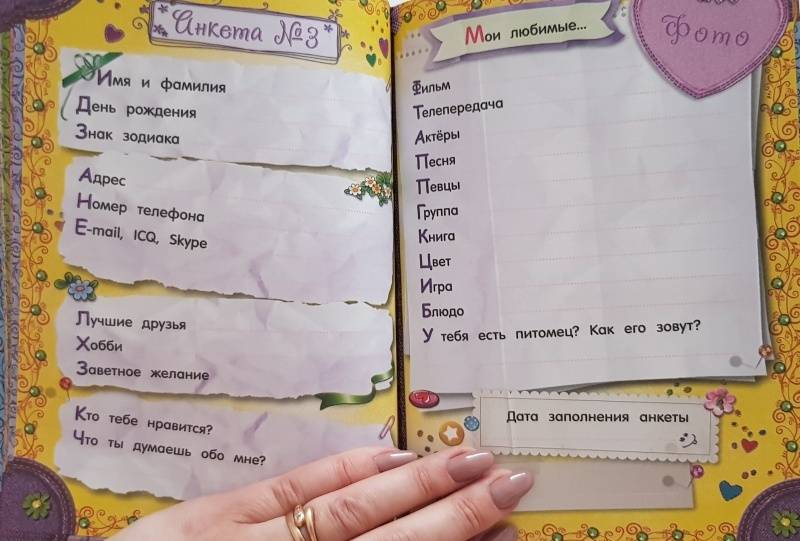 Анкета №3
Имя и фамилия
День рождения
Знак зодиака
Адрес
Номер телефона
E-mail, ICQ, Skype
Лучшие друзья
Хобби
Заветное желание
Кто тебе нравится?
Что ты думаешь обо мне?
Мои любимые...
Фото
Фильм
Телепередача
Актёры
Песня
Певцы
Группа
Книга
Цвет
Игра
Блюдо
У тебя есть питомец? Как его зовут?
Дата заполнения анкеты